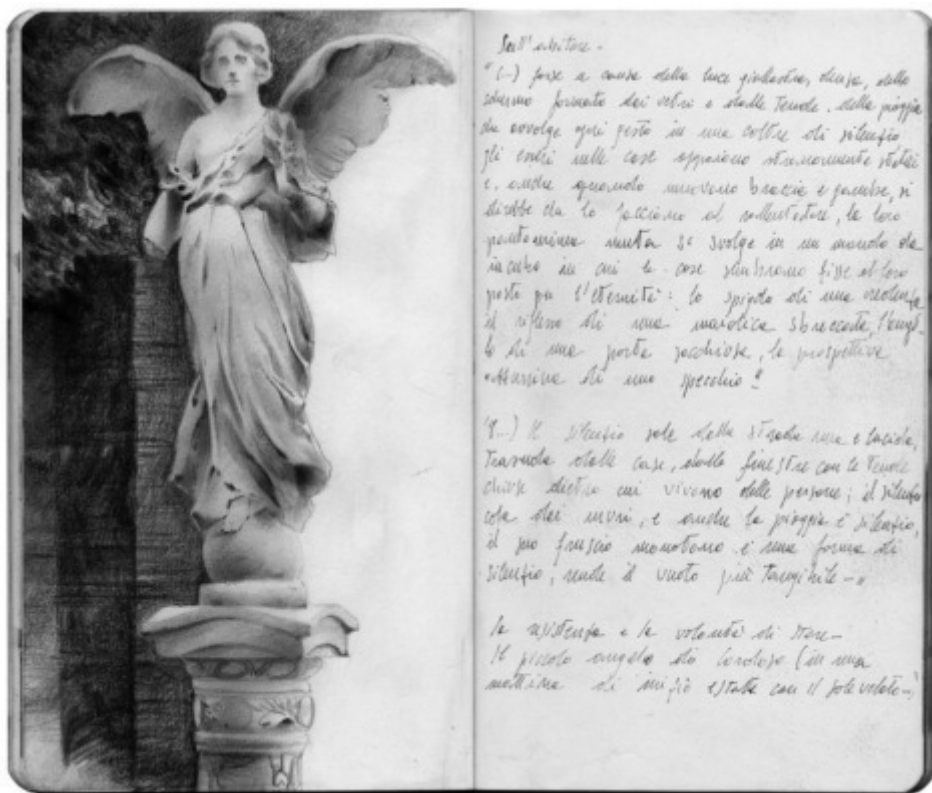 Sull'abitare -
"(...) forse a causa della luce giallastra, densa, dello
schermo formato dai vetri e dalle tende, della pioggia
che avvolge ogni gesto in una coltre di silenzio
gli esseri nelle case appaiono stranamente statici
e, anche quando muovono braccia e gambe, si
direbbe che lo facciano al rallentatore, la loro
pantomima muta si svolge in un mondo da
incubo in cui le cose sembrano fisse al loro
posto per l'eternità: lo spigolo di una credenza
il riflesso di una maiolica sbreccata, l'ango-
lo di una porta socchiusa, la prospettiva
di uno specchio."
"(...) Il silenzio sale dalla strada nera e lucida,
trasuda dalle case, dalle finestre con le tende
chiuse dietro cui vivono delle persone; il silenzio
cola dai muri, e anche la pioggia è silenzio,
il suo fruscio monotono è una forma di
silenzio, rende il vuoto più tangibile -"
la resistenza e la volontà di stare -
Il piccolo angelo di (in una
mattina di inizio estate con il sole velato -)